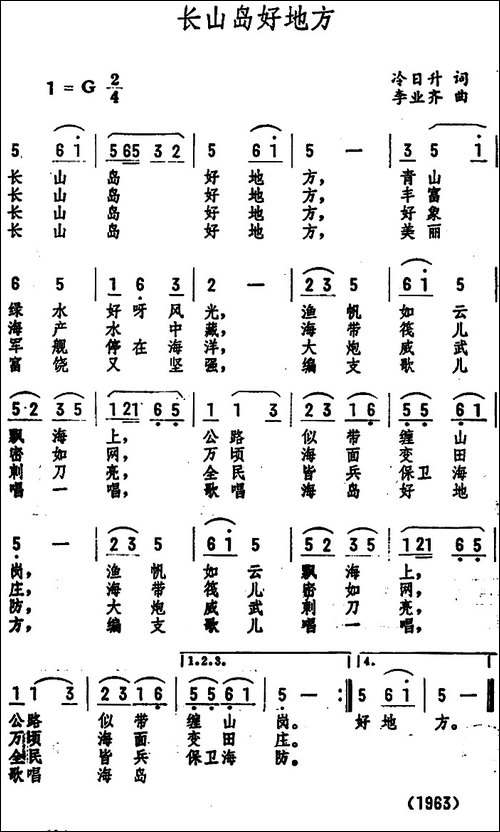 长山岛好地方
1=G 2/4
冷日升 词
李业齐 曲
5 6 i 565 3 2 5 6 i 5 — 3 5 i
长山岛好地方，青山
长山岛好地方，丰富
长山岛好地方，好象
长山岛好地方，美丽
6 5 1 6 3 2 — 2 3 5 6 i 5
绿水好呀风光，渔帆如云
海产水中藏，海带筏儿
军舰停在海洋，大炮威武
富饶又坚强，编支歌儿
5·2 3 5 1 21 6 5 1 1 3 2 3 1 6 5 5 6 1
飘海上，公路似带缠山
密如网，万顷海面变田
刺刀亮，全民皆兵保卫海
唱一唱，歌唱海岛好地
5 — 2 3 5 6 i 5 5 2 3 5 1 21 6 5
岗，渔帆如云飘海上，
庄，海带筏儿密如网，
防，大炮威武刺刀亮，
方，编支歌儿唱一唱，
1.2.3. 4.
1 1 3 2 3 1 6 5 5 6 1 5 — 5 6 i 5 —
公路似带缠山岗。好地方。
万顷海面变田庄。
全民皆兵保卫海防。
歌唱海岛
(1963)